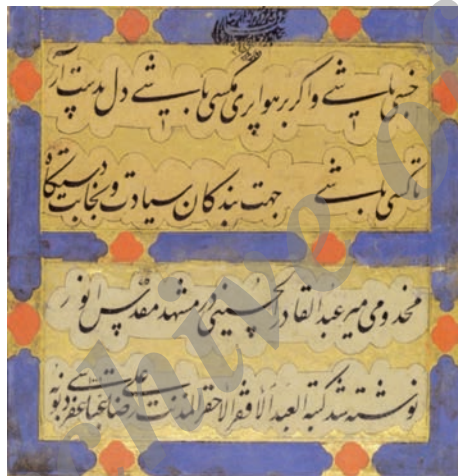 خسی باشی و اگر بر هوا پری مگسی باشی دل بدست آر
تا کسی باشی جهت بندگان سیادت و نجابت دستگاه
مخدومی میر عبدالقادر الحسینی در مشهد مقدس انور
نوشته شد کتبه العبد الافقر الاحقر المذنب علی رضا عباسی غفر ذنوبه